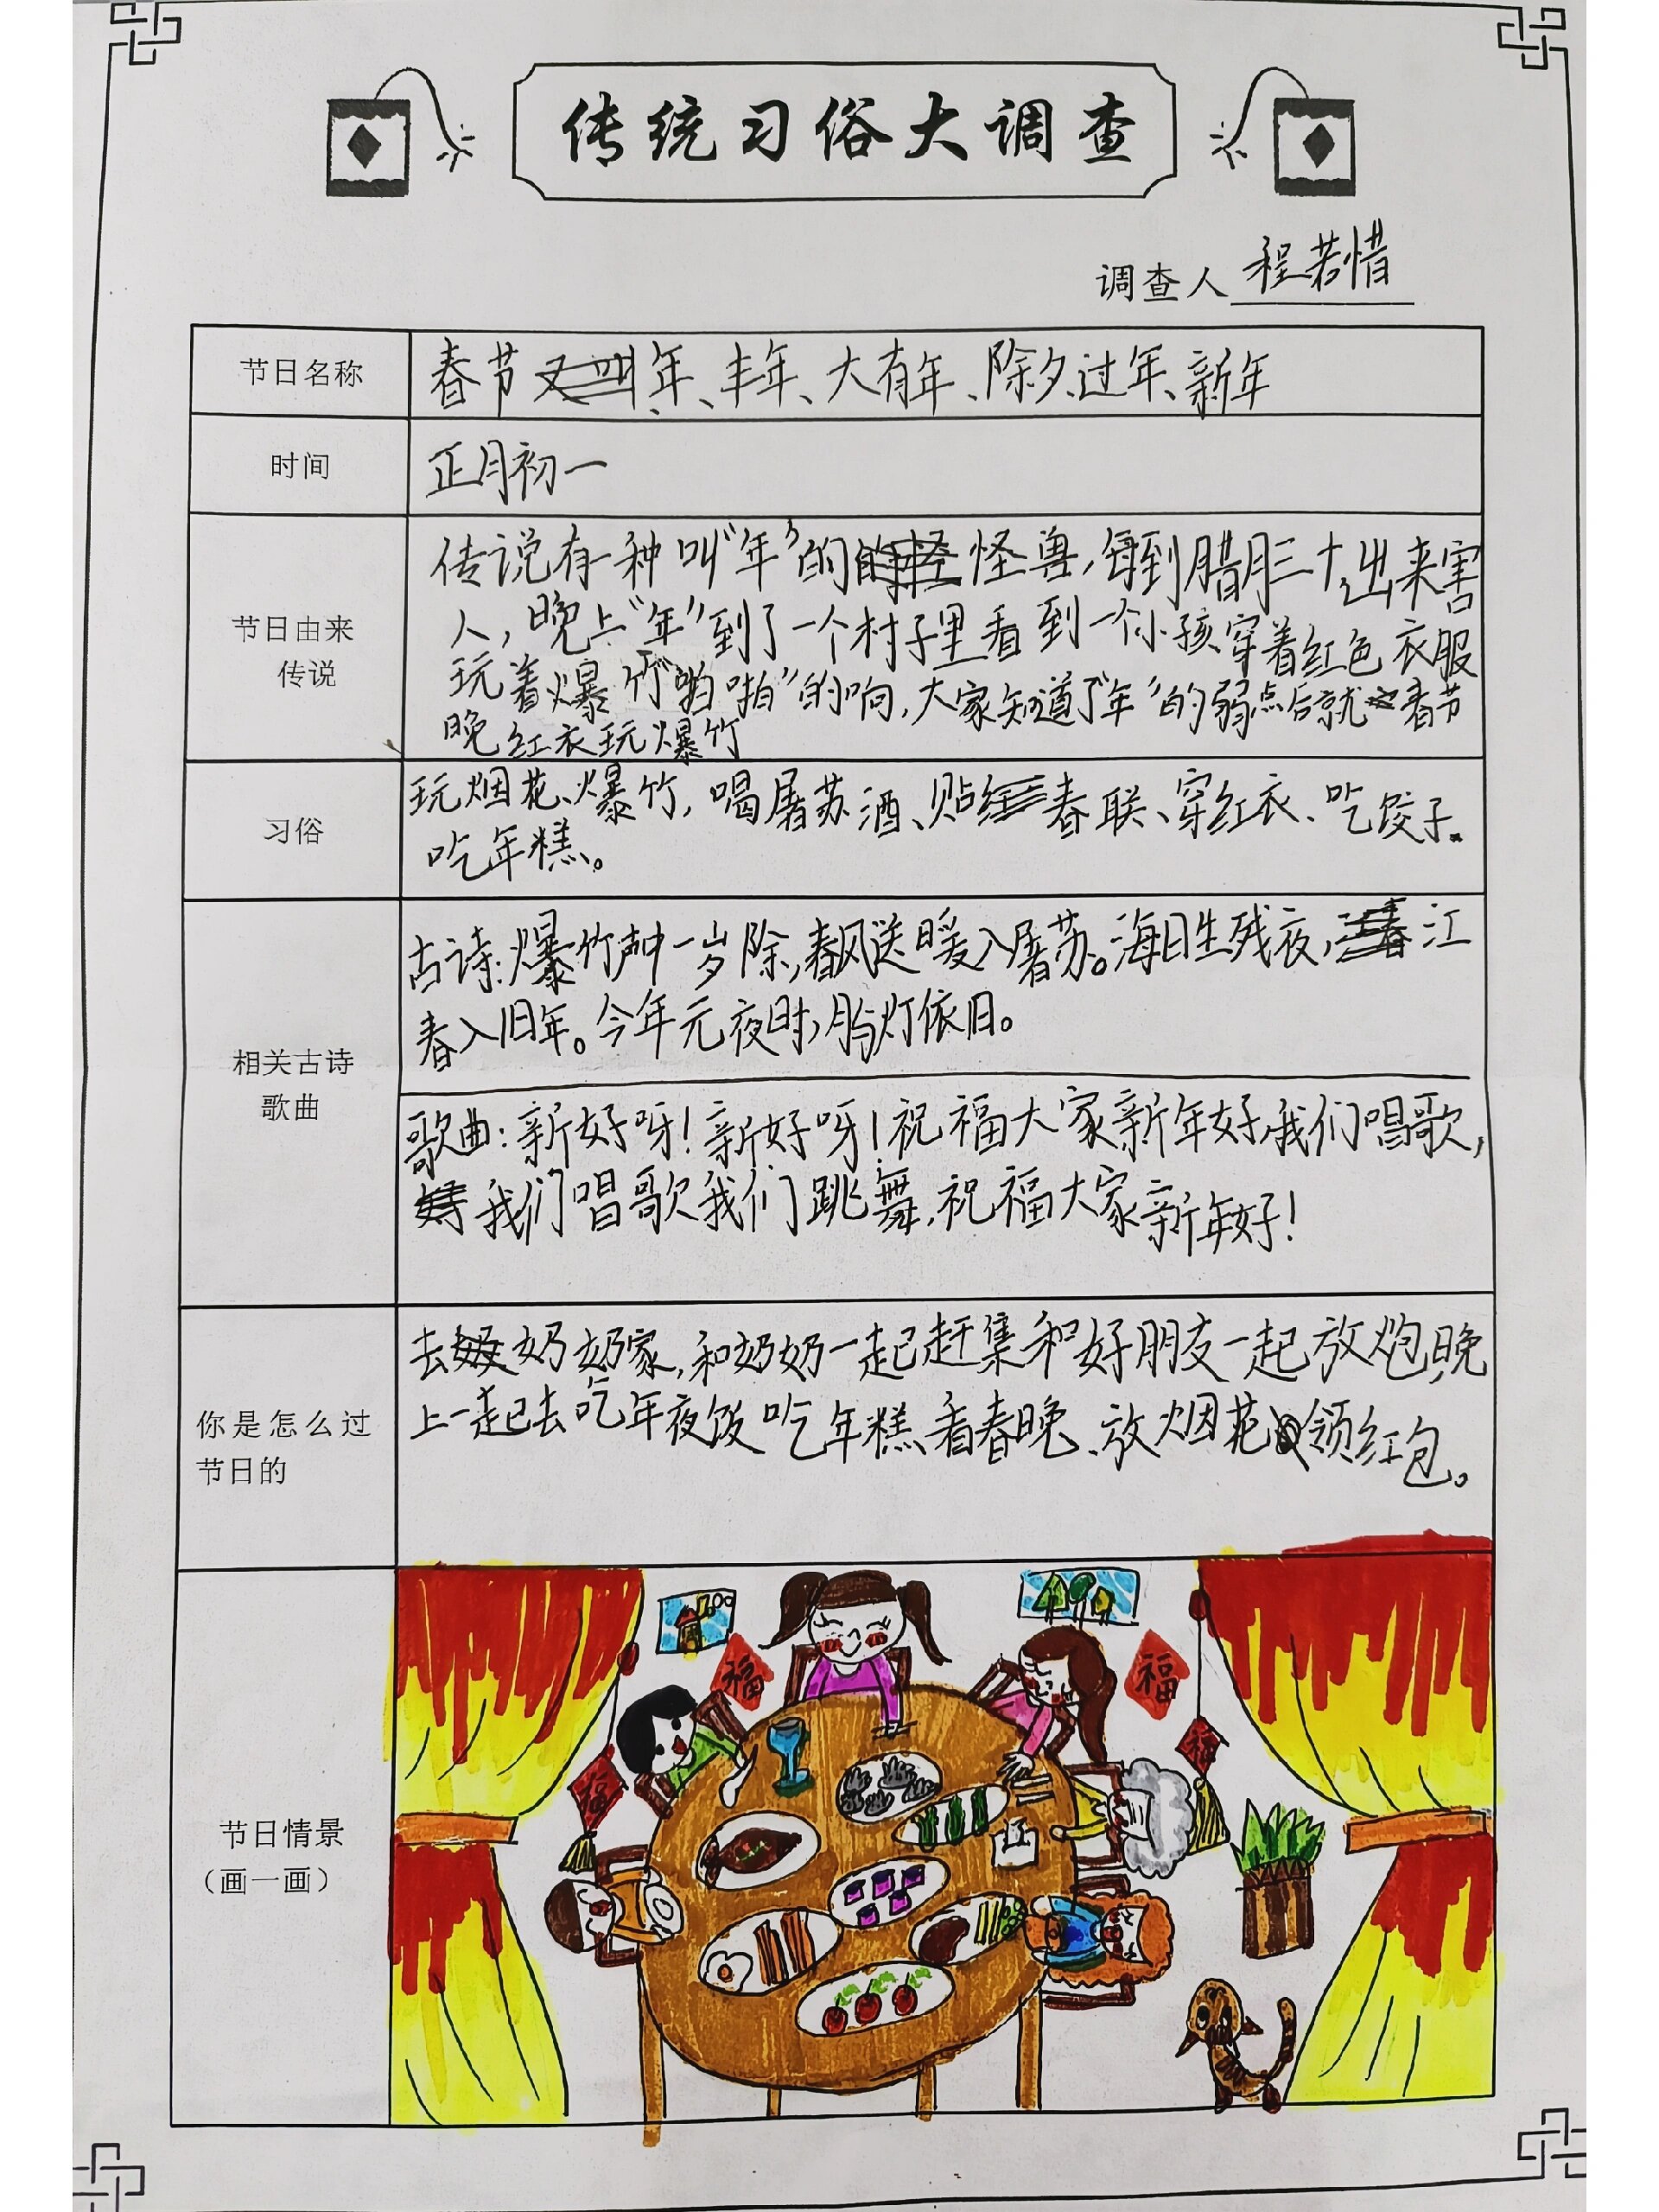 传统习俗大调查
调查人 程若惜
节日名称
春节 又叫年、丰年、大有年、除夕、过年、新年
时间
正月初一
节日由来
传说
传说有一种叫“年”的的怪怪兽,每到腊月三十,出来害
人,晚上“年”到了一个村子里看到一个小孩穿着红色衣服
玩着爆竹“啪啪”的响,大家知道了“年”的弱点后就 春节
晚红衣玩爆竹
习俗
玩烟花、爆竹,喝屠苏酒、贴 春联、穿红衣、吃饺子、
吃年糕。
相关古诗
歌曲
古诗:爆竹声中一岁除,春风送暖入屠苏。海日生残夜,春江
春入旧年。今年元夜时,月与灯依旧。
歌曲:新好呀!新好呀!祝福大家新年好,我们唱歌,
我们唱歌我们跳舞,祝福大家新年好!
你是怎么过
节日的
去 奶奶家,和奶奶一起赶集和好朋友一起放炮,晚
上一起去吃年夜饭吃年糕、看春晚、放烟花、领红包。
节日情景
(画一画)
福
福
福
福